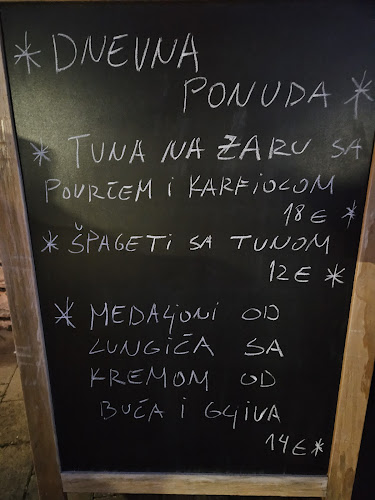 * DNEVNA
PONUDA *
* TUNA NA ŽARU SA
POVRĆEM I KARFIOLOM
18€ *
* ŠPAGETI SA TUNOM
12€ *
* MEDALJONI OD
LUNGIĆA SA
KREMOM OD
BUĆA I GLJIVA
14€ *